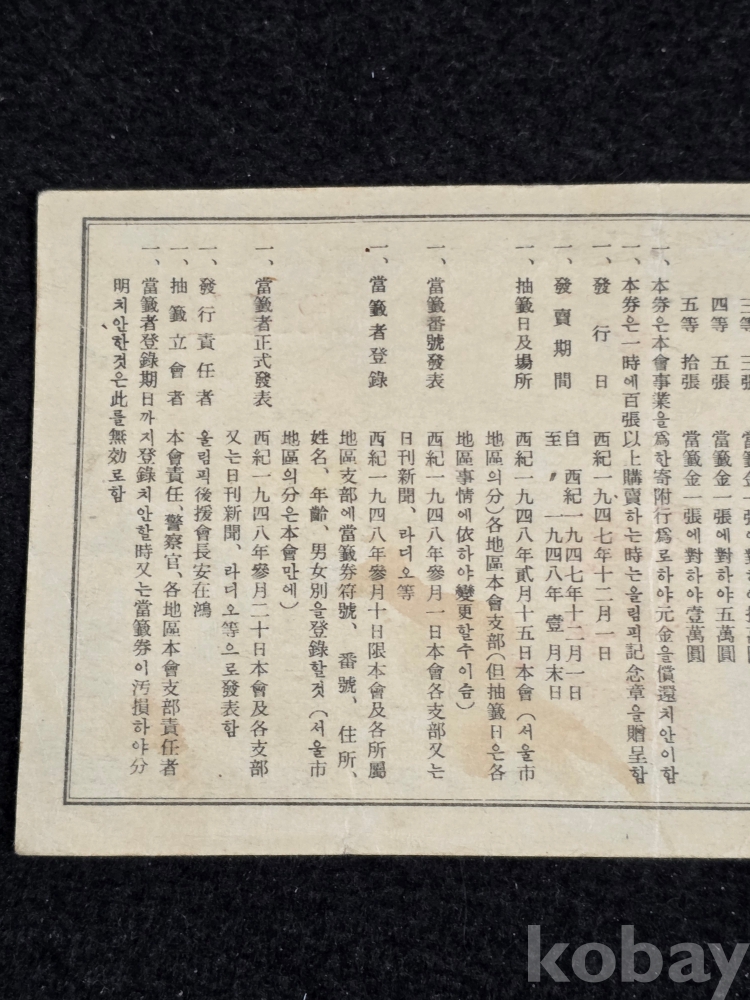 三等 三張 當籤金一張에對하야
四等 五張 當籤金一張에對하야五萬圓
五等 拾張 當籤金一張에對하야壹萬圓
一、本券은本會事業을爲한寄附行爲로하야元金을償還치안이함
一、本券은一時에百張以上購賣하는時는올림픽記念章을贈呈함
一、發行日 西紀一九四七年十二月一日
一、發賣期間 自 西紀一九四七年十二月一日
至 〃 一九四八年 壹 月末日
一、抽籤日及場所 西紀一九四八年貳月十五日本會(서울市
地區의分)各地區本會支部(但抽籤日은各
地區事情에依하야變更할수이슴)
一、當籤番號發表 西紀一九四八年參月一日本會各支部又는
日刊新聞、라디오等
一、當籤者登錄 西紀一九四八年參月十日限本會及各所屬
地區支部에當籤券符號、番號、住所、
姓名、年齡、男女別을登錄할것(서울市
地區의分은本會만에)
一、當籤者正式發表 西紀一九四八年參月二十日本會及各支部
又는日刊新聞、라디오等으로發表함
一、發行責任者 올림픽後援會長安在鴻
一、抽籤立會者 本會責任、警察官、各地區本會支部責任者
一、當籤者登錄期日까지登錄치안할時又는當籤券이汚損하야分
明치안한것은此를無効로함
kobay